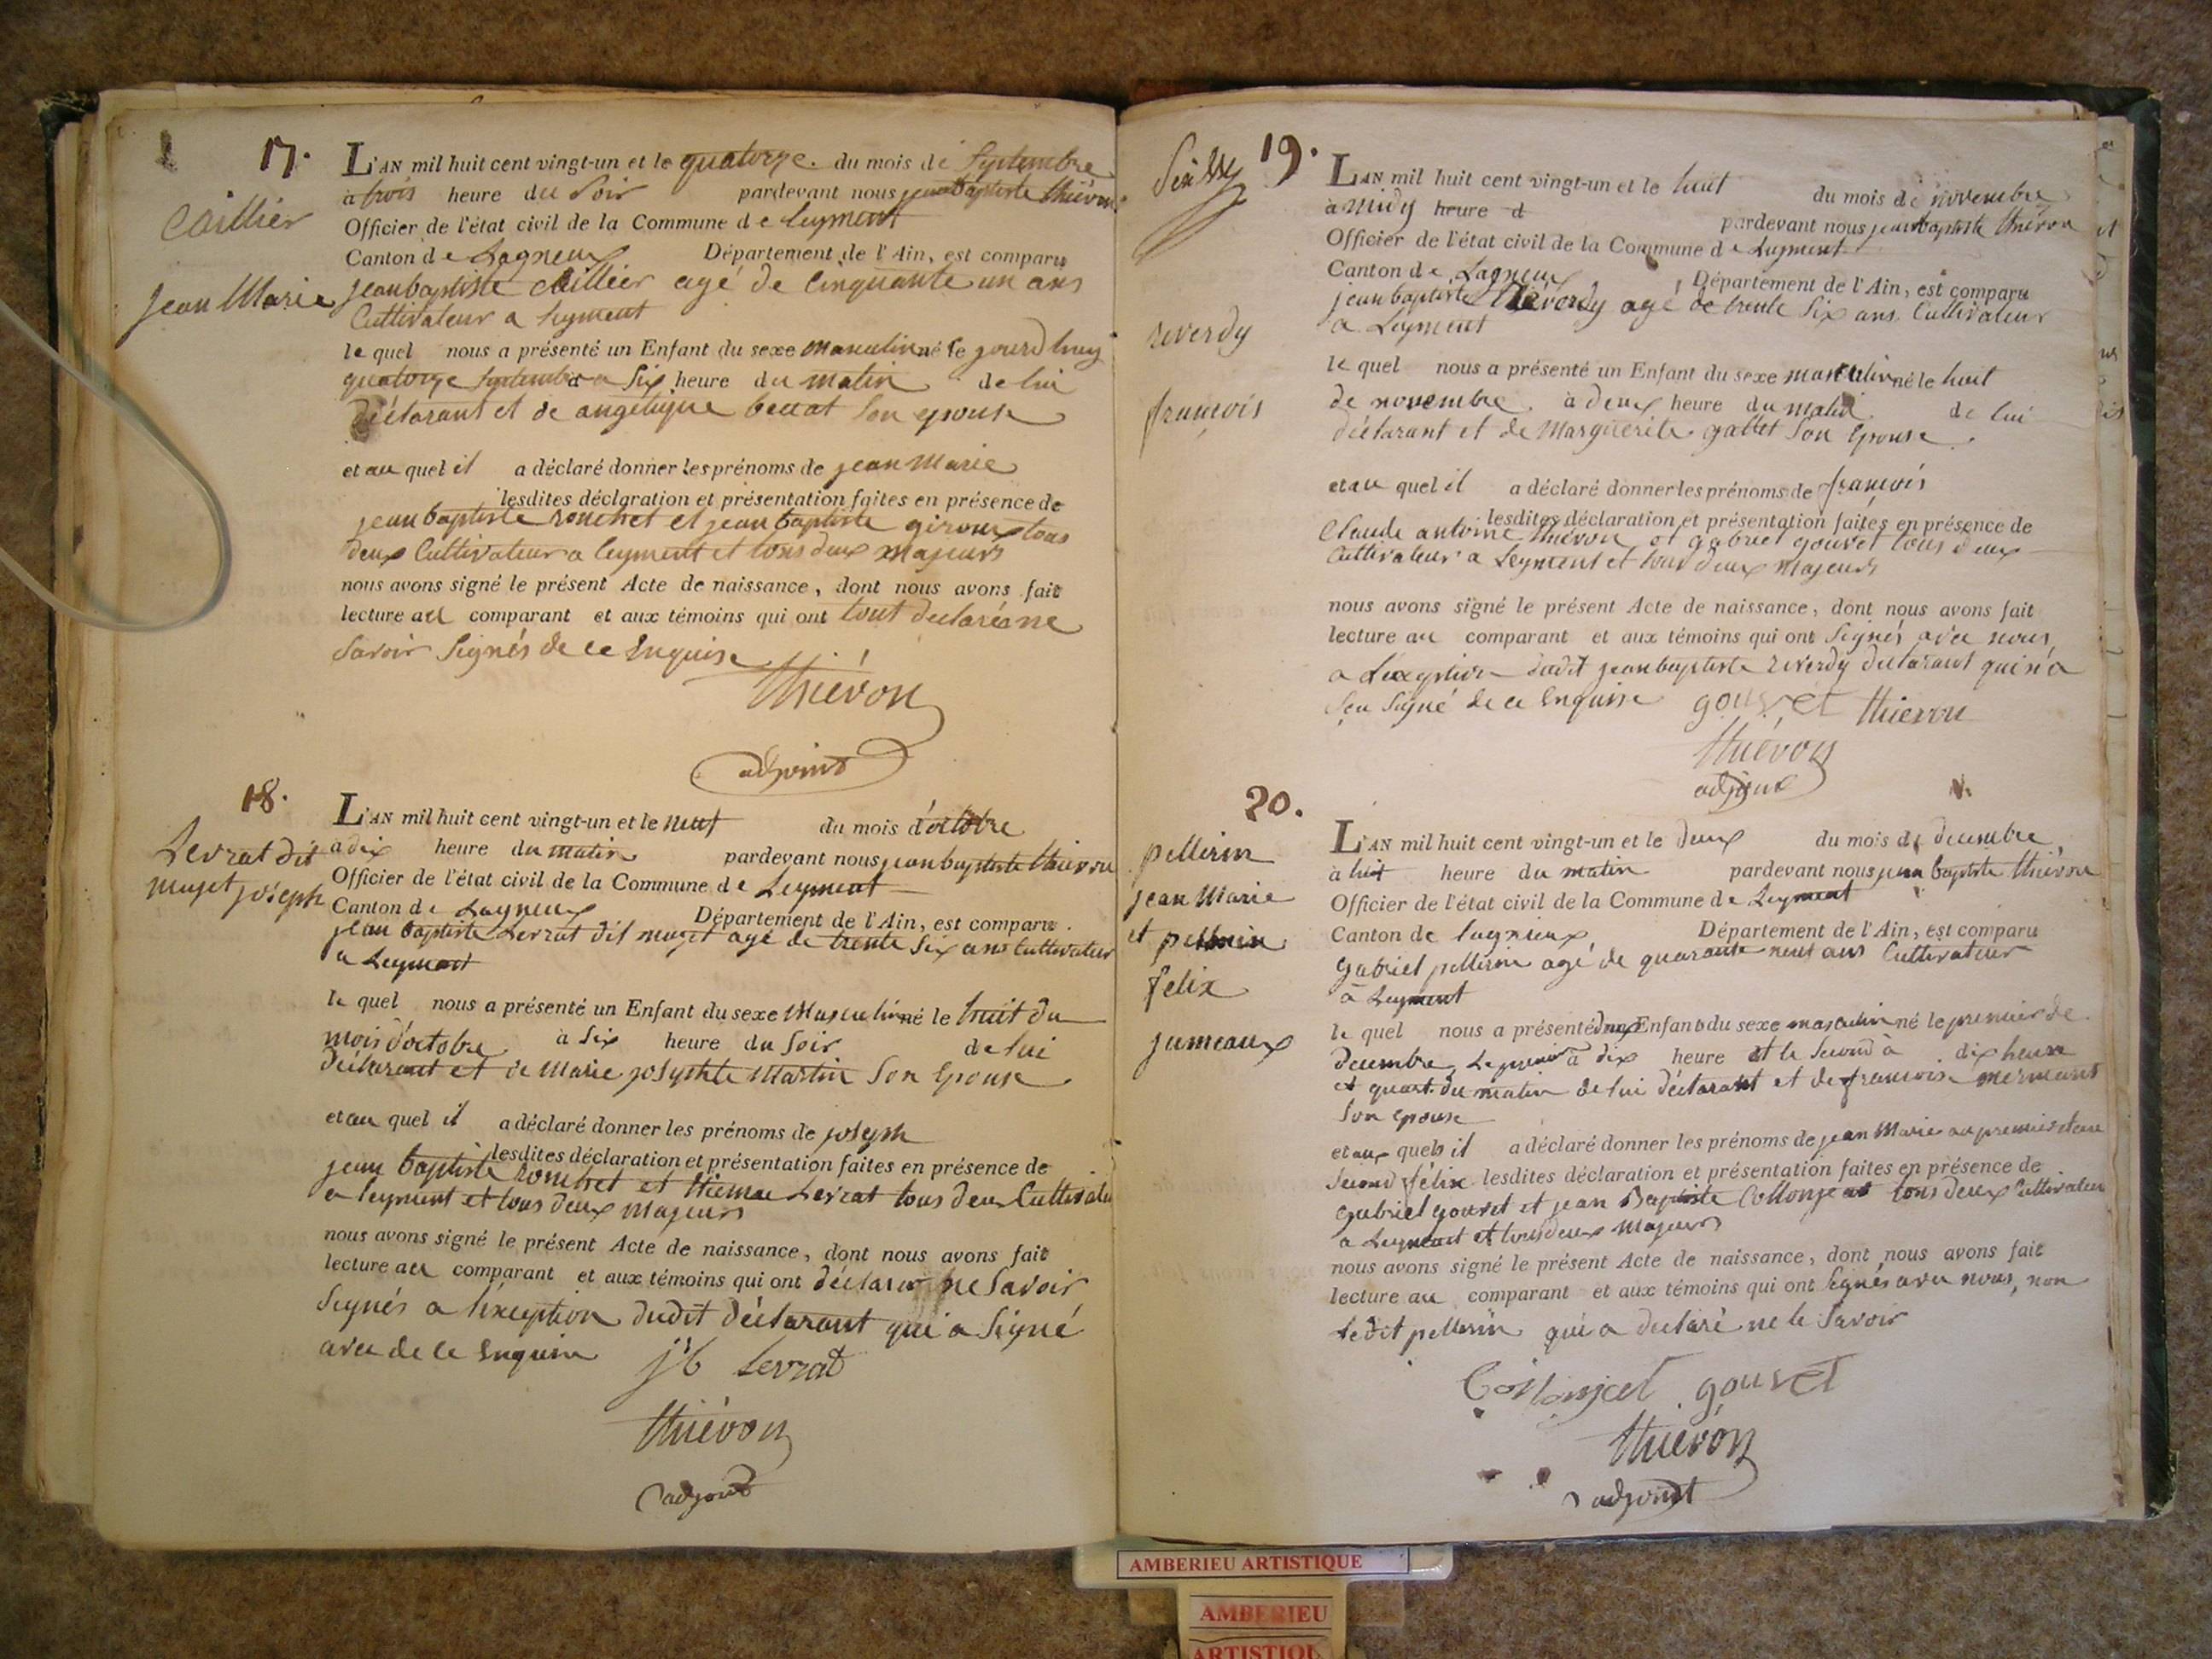 17.
Caillier
Jean Marie
L'AN mil huit cent vingt-un et le quatorze. du mois de Septembre
à trois heure du Soir pardevant nous jean baptiste thiévon
Officier de l'état civil de la Commune de leyment
Canton de Lagneux Département de l'Ain, est comparu
jean baptiste Caillier agé de Cinquante un ans
Cultivateur a leyment
le quel nous a présenté un Enfant du sexe masculin né le jourdhuy
quatorze Septembre a Six heure du matin de lui
déclarant et de angélique beccat Son epouse
et au quel il a déclaré donner les prénoms de jean Marie
lesdites déclaration et présentation faites en présence de
jean baptiste ronchet et jean baptiste giroux tous
deux Cultivateur a leyment et tous deux majeurs
nous avons signé le présent Acte de naissance, dont nous avons fait
lecture au comparant et aux témoins qui ont tout declarés ne
Savoir Signés de ce Enquise
thiévon
adjoint
18.
Levrat dit
muget joseph
L'AN mil huit cent vingt-un et le neuf du mois d'octobre
a dix heure du matin pardevant nous jean baptiste thiévon
Officier de l'état civil de la Commune de Leyment
Canton de Lagneux Département de l'Ain, est comparu
jean baptiste Levrat dit muget agé de trente Six ans Cultivateur
a Leyment
le quel nous a présenté un Enfant du sexe Masculin né le huit du
mois d'octobre à Six heure du Soir de lui
déclarant et de Marie josephte Martin Son Epouse
et au quel il a déclaré donner les prénoms de joseph
lesdites déclaration et présentation faites en présence de
jean baptiste ronchet et Levrat tous deux Cultivateur
a leyment et tous deux Majeurs
nous avons signé le présent Acte de naissance, dont nous avons fait
lecture au comparant et aux témoins qui ont déclaré ne Savoir
Signés a l'éxception dudit déclarant qui a Signé
avec de ce Enquise
jb Levrat
thiévon
adjoint
19.
reverdy
françois
L'AN mil huit cent vingt-un et le huit du mois de novembre
à midy heure d pardevant nous jean baptiste thiévon
Officier de l'état civil de la Commune de Leyment
Canton de Lagneux Département de l'Ain, est comparu
jean baptiste Réverdy agé de trente Six ans Cultivateur
a Leyment
le quel nous a présenté un Enfant du sexe masculin né le huit
de novembre à deux heure du matin de lui
déclarant et de Marguerite gallet Son Epouse
et au quel il a déclaré donner les prénoms de françois
lesdites déclaration et présentation faites en présence de
Claude antoine thiévon et gabriel gouvet tous deux
Cultivateur a Leyment et tous deux majeurs
nous avons signé le présent Acte de naissance, dont nous avons fait
lecture au comparant et aux témoins qui ont Signés avec nous,
a Lexeption dudit jean baptiste reverdy declarant qui n'a
Seu Signé de ce Enquise gouvet thievon
thiévon
adjoint
20.
pellerin
jean Marie
et pellerin
felix
jumeaux
L'AN mil huit cent vingt-un et le deux du mois de decembre
à huit heure du matin pardevant nous jean baptiste thiévon
Officier de l'état civil de la Commune de Leyment
Canton de lagnieux Département de l'Ain, est comparu
gabriel pellerin agé de quarante neuf ans Cultivateur
à Leyment
le quel nous a présenté deux Enfants du sexe masculin né le premier de
decembre, Le premier à dix heure et le Second à dix heure
et quart du matin de lui déclarant et de francoise mermant
Son epouse
et aux quels il a déclaré donner les prénoms de jean Marie au premier et au
Second félix lesdites déclaration et présentation faites en présence de
gabriel gouvet et jean Baptiste Collonjeat tous deux Cultivateur
a Leyment et tous deux Majeurs
nous avons signé le présent Acte de naissance, dont nous avons fait
lecture au comparant et aux témoins qui ont Signés avec nous, non
ledit pellerin qui a declaré ne le Savoir
Collonjeat gouvet
thiévon
adjoint
AMBERIEU ARTISTIQUE
AMBERIEU
ARTISTIQU